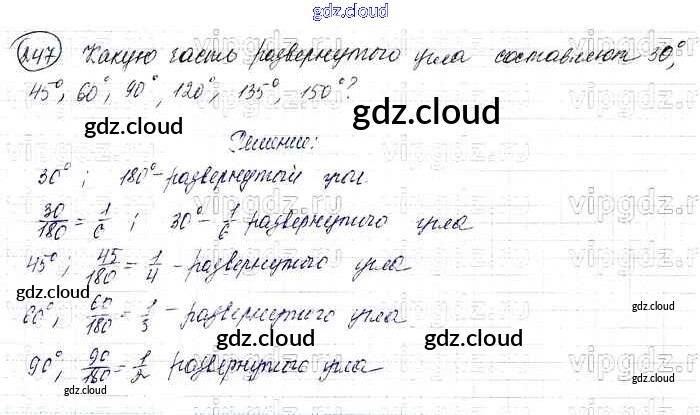 gdz.cloud
247 Какую часть развернутого угла составляют 30°,
45°, 60°, 90°, 120°, 135°, 150°?
gdz.cloud
gdz.cloud
Решение:
30°; 180° - развернутый угол.
30/180 = 1/6; 30° - 1/6 развернутого угла
45°; 45/180 = 1/4 - развернутого угла
gdz.cloud
gdz.cloud
60°; 60/180 = 1/3 - развернутого угла
gdz.cloud
gdz.cloud
90°; 90/180 = 1/2 развернутого угла
gdz.cloud
gdz.cloud